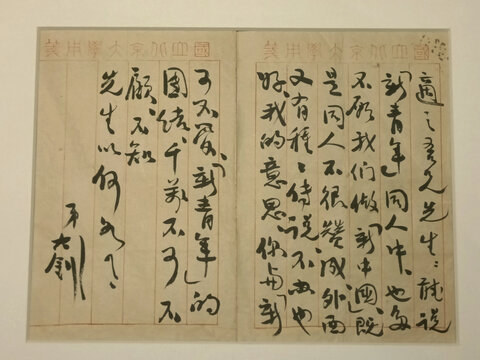 國立北京大學用箋
適之吾兄先生：聽說
「新青年」同人中，也多
不願我們做「新中國」。既
是同人不很贊成，外面
又有種種傳說，不辦也
好。我的意思，你與「新
國立北京大學用箋
可不愛，「新青年」的
團結千萬不可不
顧。不知
先生以何如
弟 大釗